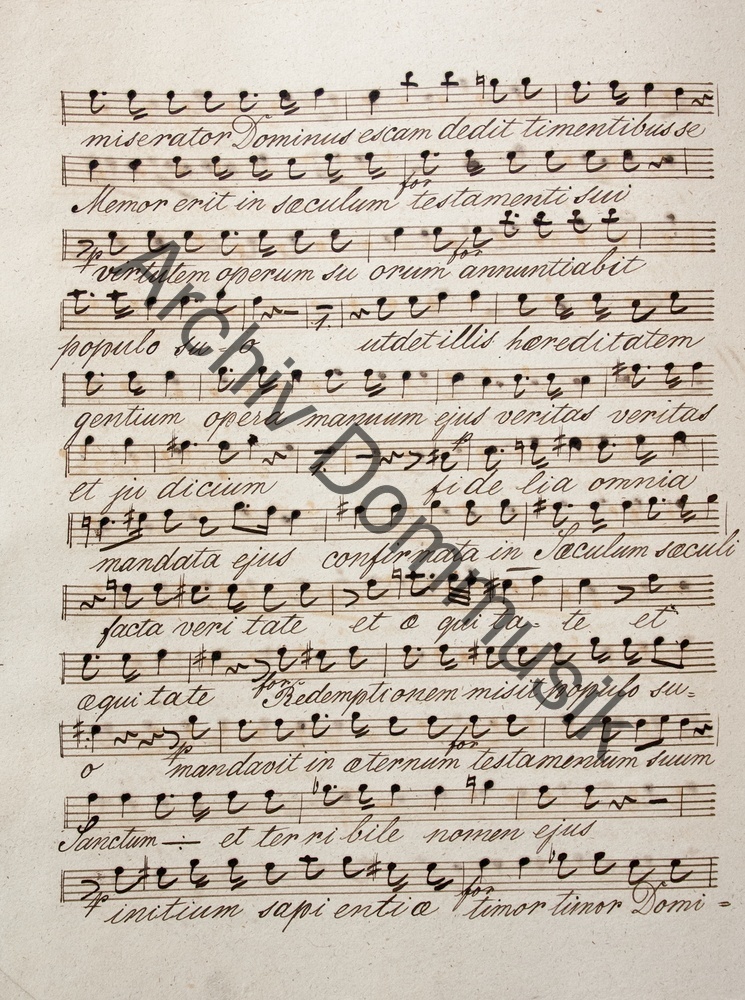 miserator Dominus escam dedit timentibus se
Memor erit in sæculum for testamenti sui
p virtutem operum su orum for annuntiabit
populo su - o ut det illis hæreditatem
gentium opera manuum ejus veritas veritas
et ju dicium p fi de lia omnia
mandata ejus confirmata in Sæculum sæculi
facta veri tate et æ qui ta - te et
æqui tate for Redemptionem misit populo su=
o p mandavit in æternum for testamentum suum
Sanctum et terri bile nomen ejus
p initium sapi entiæ for timor timor Domi =
Archiv Dommusik